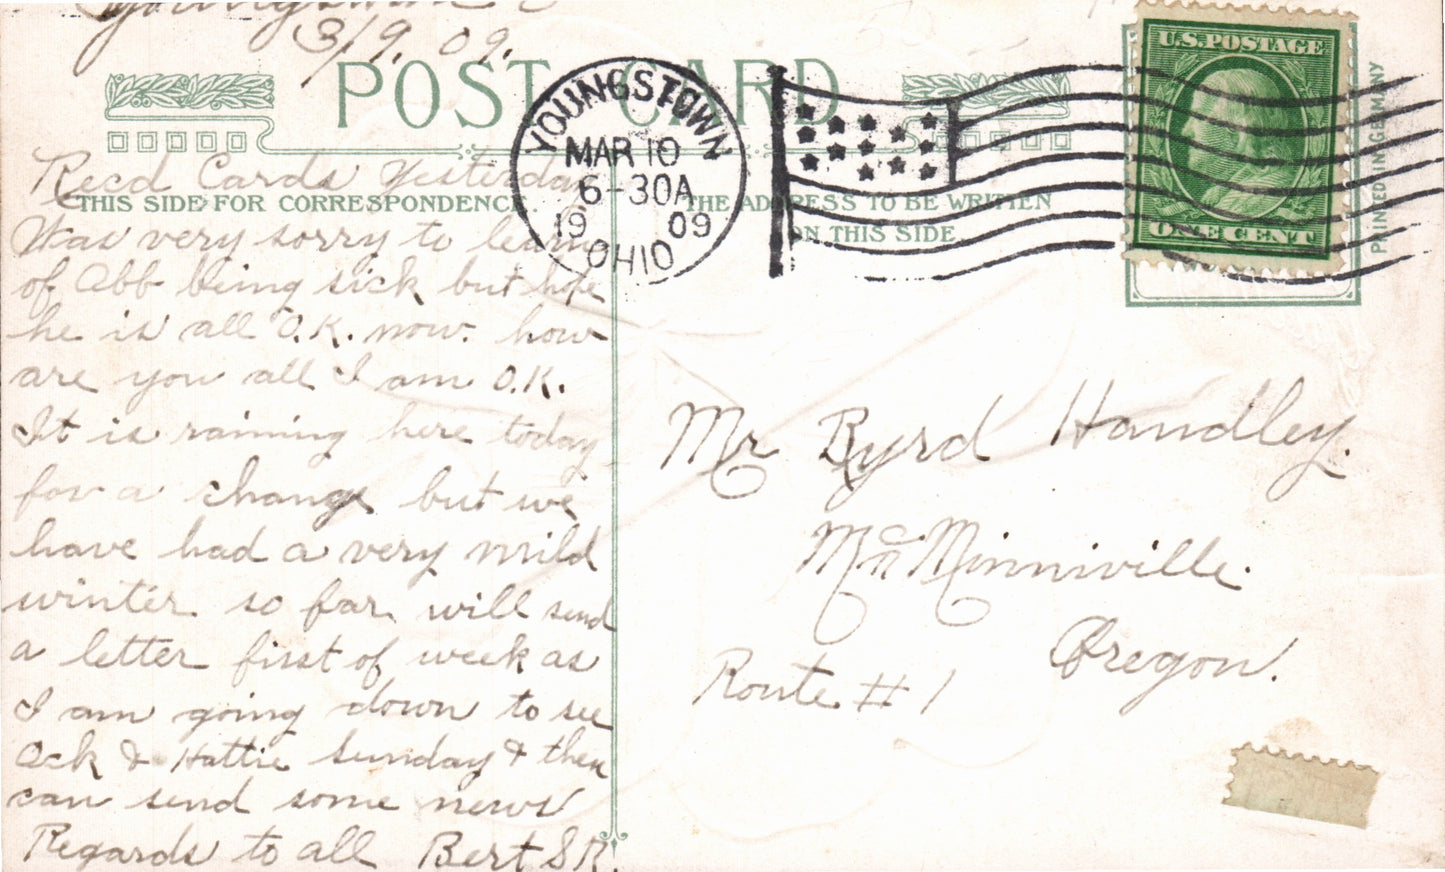 Youngstown O
3/9. 09.
POST CARD
THIS SIDE FOR CORRESPONDENCE.
Recd Cards Yesterday
Was very sorry to learn
of Abb being sick but hope
he is all O.K. now. how
are you all I am O.K.
It is raining here today
for a change but we
have had a very mild
winter so far will send
a letter first of week as
I am going down to see
Ack & Hattie Sunday & then
can send some news
Regards to all Bert S R.
YOUNGSTOWN
MAR 10
6-30A
1909
OHIO
THE ADDRESS TO BE WRITTEN
ON THIS SIDE.
U.S. POSTAGE
ONE CENT
PRINTED IN GERMANY
Mr Byrd Handley.
McMinniville.
Oregon.
Route # 1